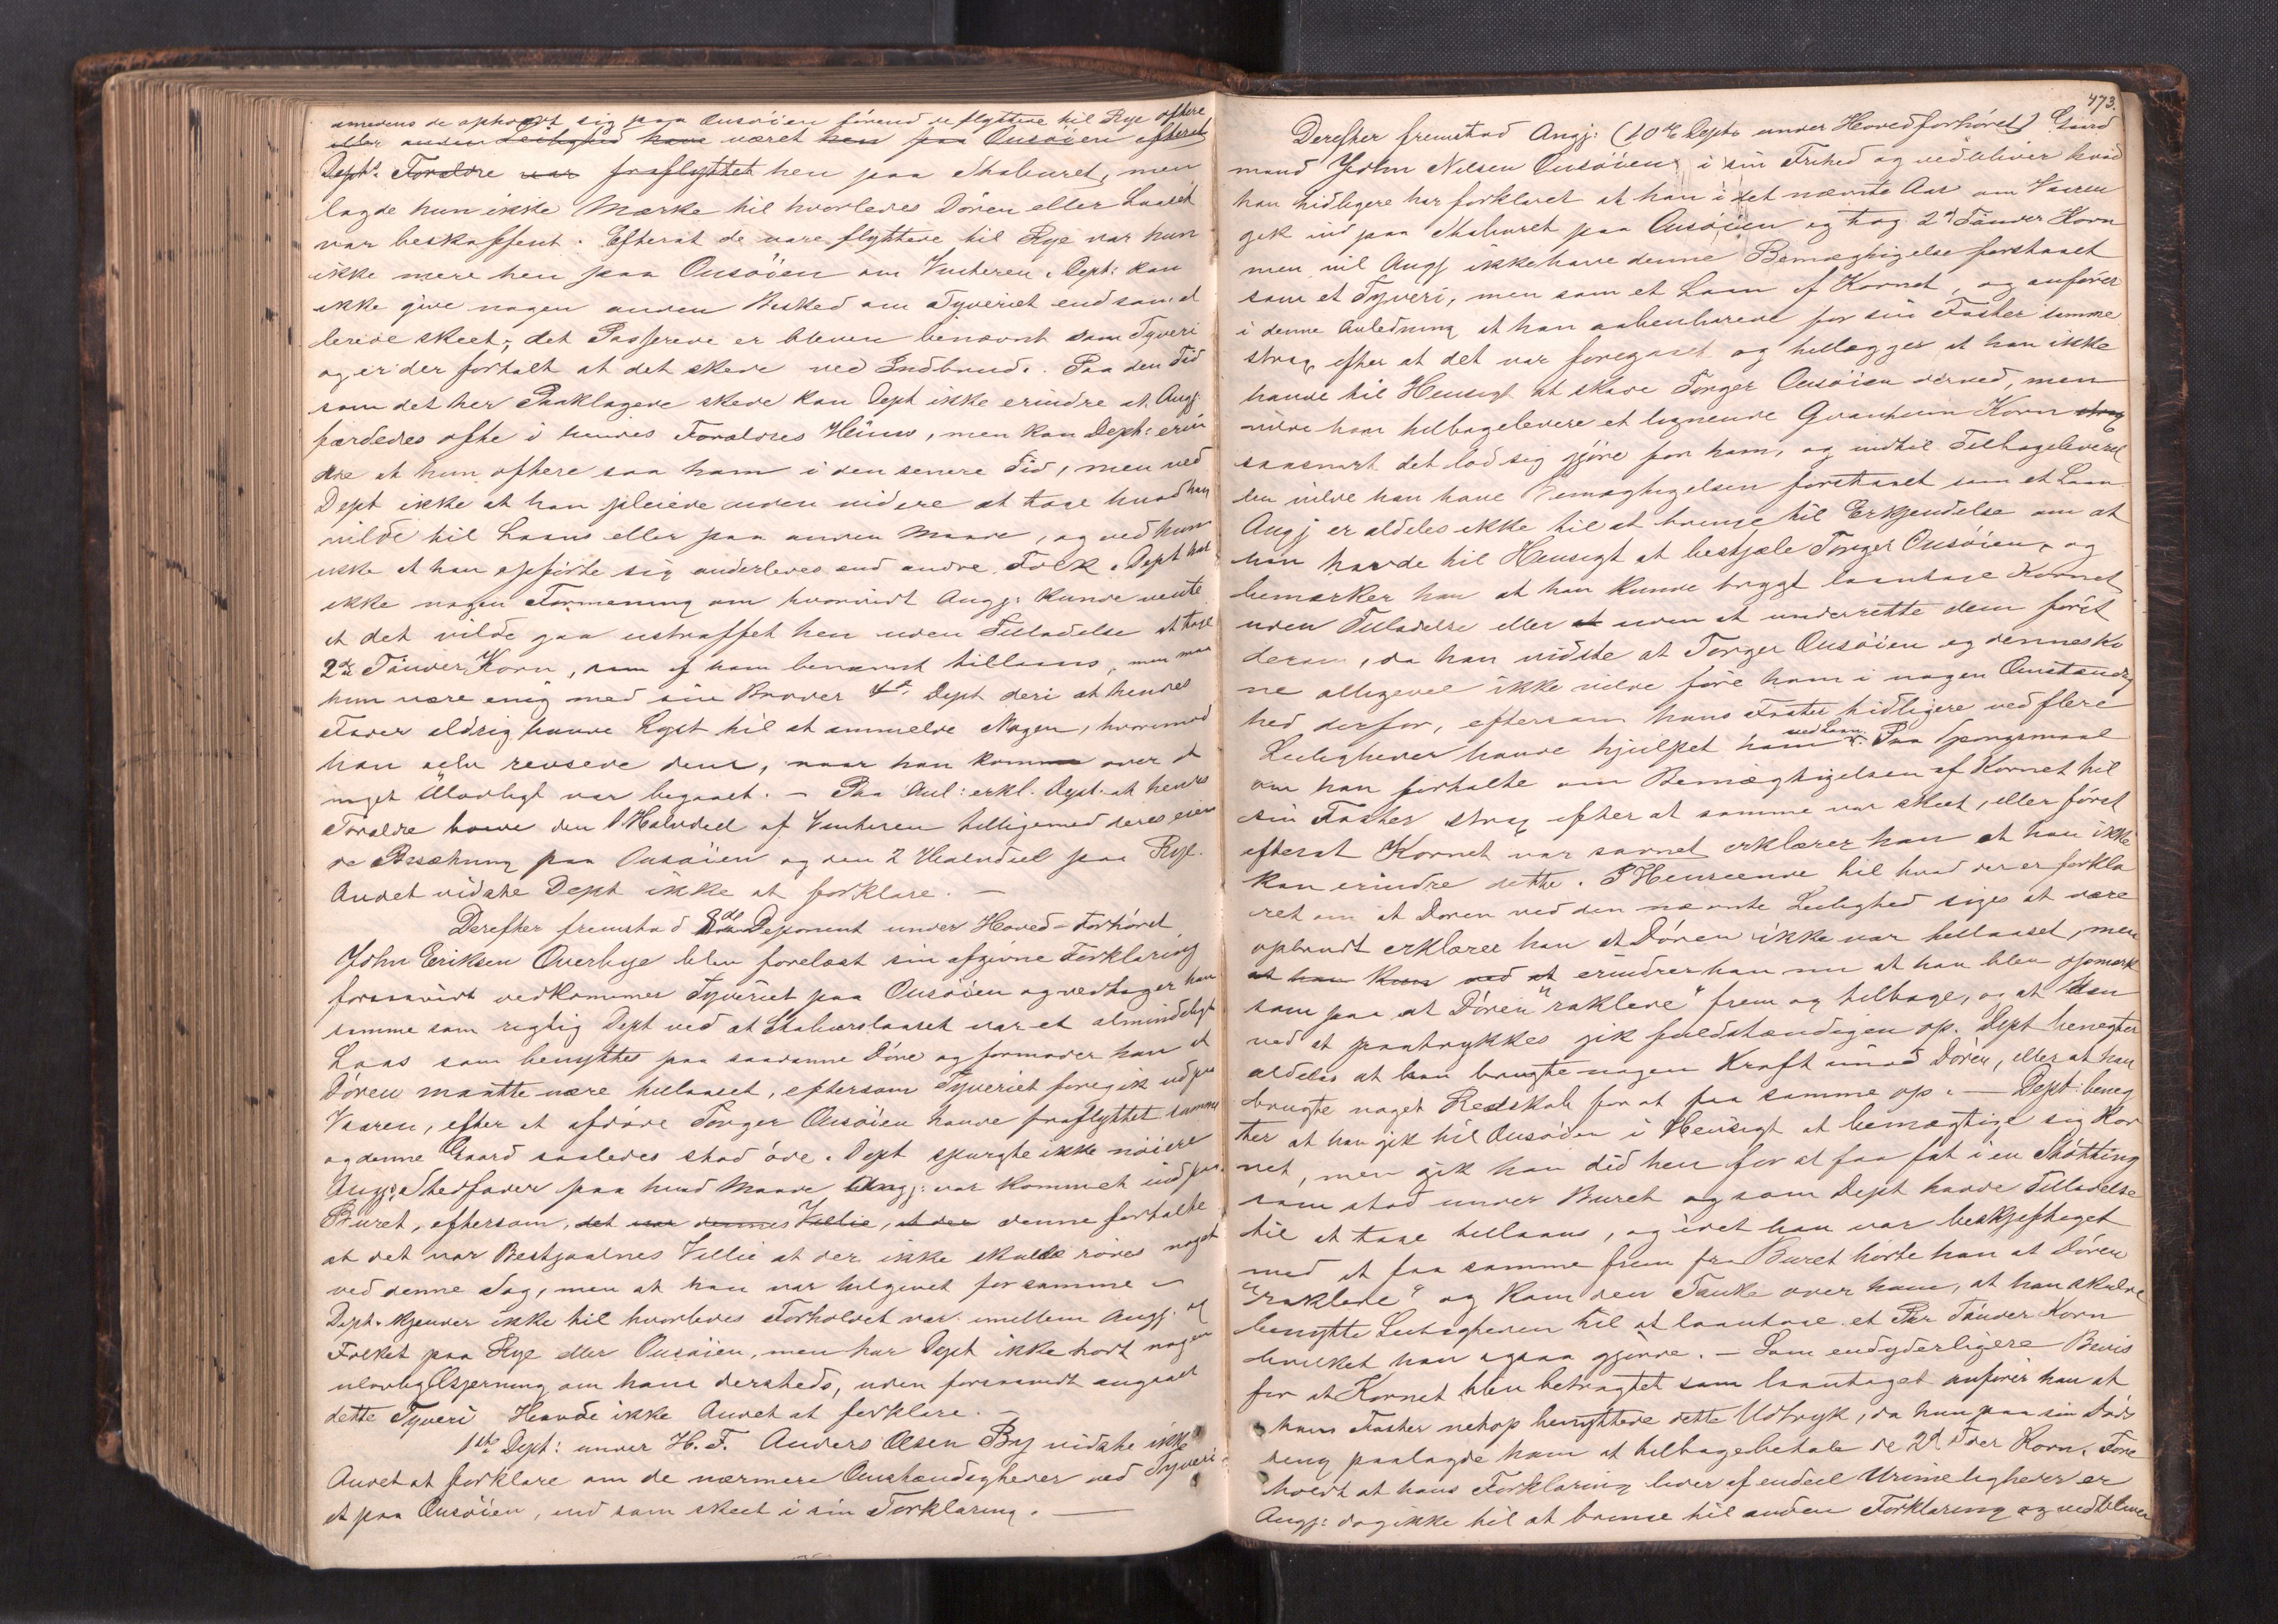 imedens de opholdt sig paa Onsöien förend de flyttede til Rye oftere
eller anden Leilighed have været hen paa Onsöien efterat
Dept: Forældre var fraflyttet hen paa Stabueret, men
lagde hun ikke Mærke til hvorledes Dören eller Laaset
var beskaffent. Efterat de vare flyttede til Rye var hun
ikke mere hen paa Onsöien om Vinteren. Dept: kan
ikke give nogen anden Besked om Tyveriet end som al
lerede skeet; det Passerede er bleven benævnt som Tyveri
og er der fortalt at det skede ved Indbrud. Paa den Tid
som det her Paaklagede skede kan Dept ikke erindre at Angj:
færdedes ofte i hendes Forældres Huus, men kan Dept: erin
dre at hun oftere saa ham i den senere Tid, men ved
Dept ikke at han pleiede uden videre at tage hvad han
vilde til Laans eller paa anden Maade, og ved hun
ikke at han opförte sig anderledes end andre Folk. Dept har
ikke nogen Formening om hvorvidt Angj: kunde vente
at det vilde gaa ustraffet hen uden Tilladelse at tage
2de Tönder Korn, som af ham benævnt tillaans, men maa
hun være enig med sin Broder 4de Dept deri at hendes
Fader aldrig havde Lyst til at anmelde Nogen, hvorimod
han selv revsede dem, naar han kom over at
noget Ulovligt var begaaet. – Paa Anl: erkl. Dept. at hendes
Forældre havde den 1 Halvdeel af Vinteren tilligemed deres eien
de Besætning paa Onsöien og den 2 Halvdeel paa Rye.
Andet vidste Dept ikke at forklare. –
Derefter fremstod 8de Deponent under Hoved-Forhöret
John Eriksen Overbye blev forelæst sin afgivne Forklaring
forsaavidt vedkommer Tyveriet paa Onsöien og vedtager han
samme som rigtig Dept ved at Stabuurslaaset var et almindeligt
Laas som benyttes paa saadanne Döre og formoder han at
Dören maatte være tillaaset, eftersom Tyveriet foregik ud paa
Vaaren, efter at afdöde Torger Onsöien havde fraflyttet samme
og denne Gaard saaledes stod öde. Dept spurgte ikke nöiere
Angjs Stedfader paa hvad Maade Angj: var kommet ind paa
Buret, eftersom det var dennes Villie, at der denne fortalte
at det var Bestjaalnes Villie at der ikke skulde röres noget
ved denne Sag, men at han var tilgivet for samme –
Dept. kjender ikke til hvorledes Forholdet var imellem Angj. og
Folket paa Rye eller Onsöien, men har Dept ikke hört nogen
ulovlig Gjerning om ham dersteds, uden forsaavidt angaaer
dette Tyveri Havde ikke Andet at forklare. –
1ste Dept: under H. F. Anders Olsen By vidste ikke
Andet at forklare om de nærmere Omstændigheder ved Tyveri
et paa Onsöien, end som skeet i sin Forklaring. –
473.
Derefter fremstod Angj: (10de Dept. under Hovedforhöret) Gaard
mand John Nilsen Onsöien i sin Frihed og vedbliver hvad
han tidligere har forklaret at han i det nævnte Aar om Vaaren
gik ind paa Staburet paa Onsöien og tog 2de Tönder Korn
men vil Angj ikke have denne Bemægtigelse forstaaet
som et Tyveri, men som et Laan af Kornet, og anförer
i denne Anledning at han aabenbarede for sin Faster samme
strax efter at det var foregaaet og tillægger at han ikke
havde til Hensigt at skade Torger Onsöien derved, men
vilde han tilbagelevere et lignende Qvantum Korn strax
saasnart det lod sig gjöre for ham, og indtil Tilbageleverel
sen vilde han have Bemægtigelsen forstaaet som et Laan
Angj er aldeles ikke til at bringe til Erkjendelse om at
han havde til Hensigt at bestjæle Torger Onsöien, og
bemærker han at han kunde trygt laantage Kornet
uden Tilladelse eller at uden at underrette dem först
derom, da han vidste at Torger Onsöien og dennes Ko
ne alligevel ikke vilde före ham i nogen Omstændig
hed derfor, eftersom hans Faster tidligere ved flere
Leiligheder havde hjulpet ham ved Laan. Paa Spörgsmaal
om han fortalte om Bemægtigelsen af Kornet til
sin Faster strax efter at samme var skeet, eller först
efterat Kornet var savnet erklærer han at han ikke
kan erindre dette. I Henseende til hvad der er forkla
ret om at Dören ved den nævnte Leilighed siges at være
opbrudt erklærer han at Dören ikke var tillaaset, men
at han kun ved at erindrer han nu at han blev opmærk
som paa at Dören "raklede" frem og tilbage, og at den
ved at paatrykkes gik fuldstændigen op. Dept benegter
aldeles at han brugte nogen Kraft imod Dören, eller at han
brugte noget Redskab for at faa samme op. – Dept: beneg
ter at han gik til Onsöien i Hensigt at bemægtige sig Kor
net, men gik han did hen for at faa fat i en Skötting
som stod under Buret og som Dept havde Tilladelse
til at tage tillaans, og idet han var beskjeftiget
med at faa samme frem fra Buret hörte han at Dören
"raklede" og kom den Tanke over ham, at han skulde
benytte Leiligheden til at laantage et Par Tönder Korn
hvilket han ogsaa gjorde. – Som endyderligere Beviis
for at Kornet blev betragtet som laantaget anförer han at
hans Faster netop benyttede dette Udtryk, da hun paa sin Döds
seng paalagde ham at tilbagebetale de 2de Tdr Korn. Fore
holdt at hans Forklaring lider af endeel Urimeligheder er
Angj: dog ikke til at bringe til anden Forklaring og vedbliver